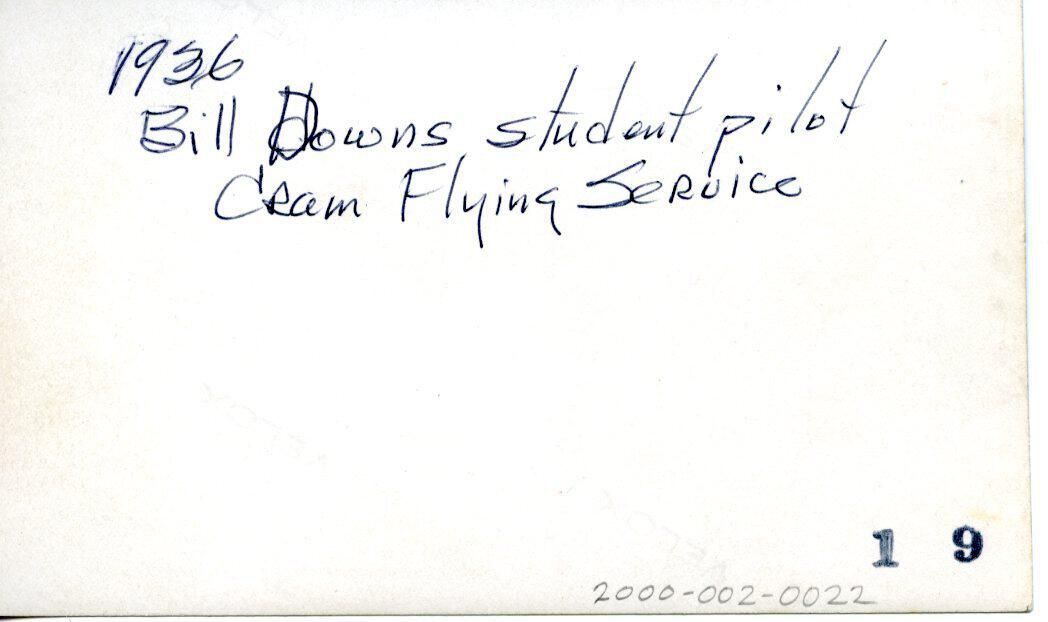 1936
Bill Downs student pilot
Cram Flying Service
1 9
2000-002-0022